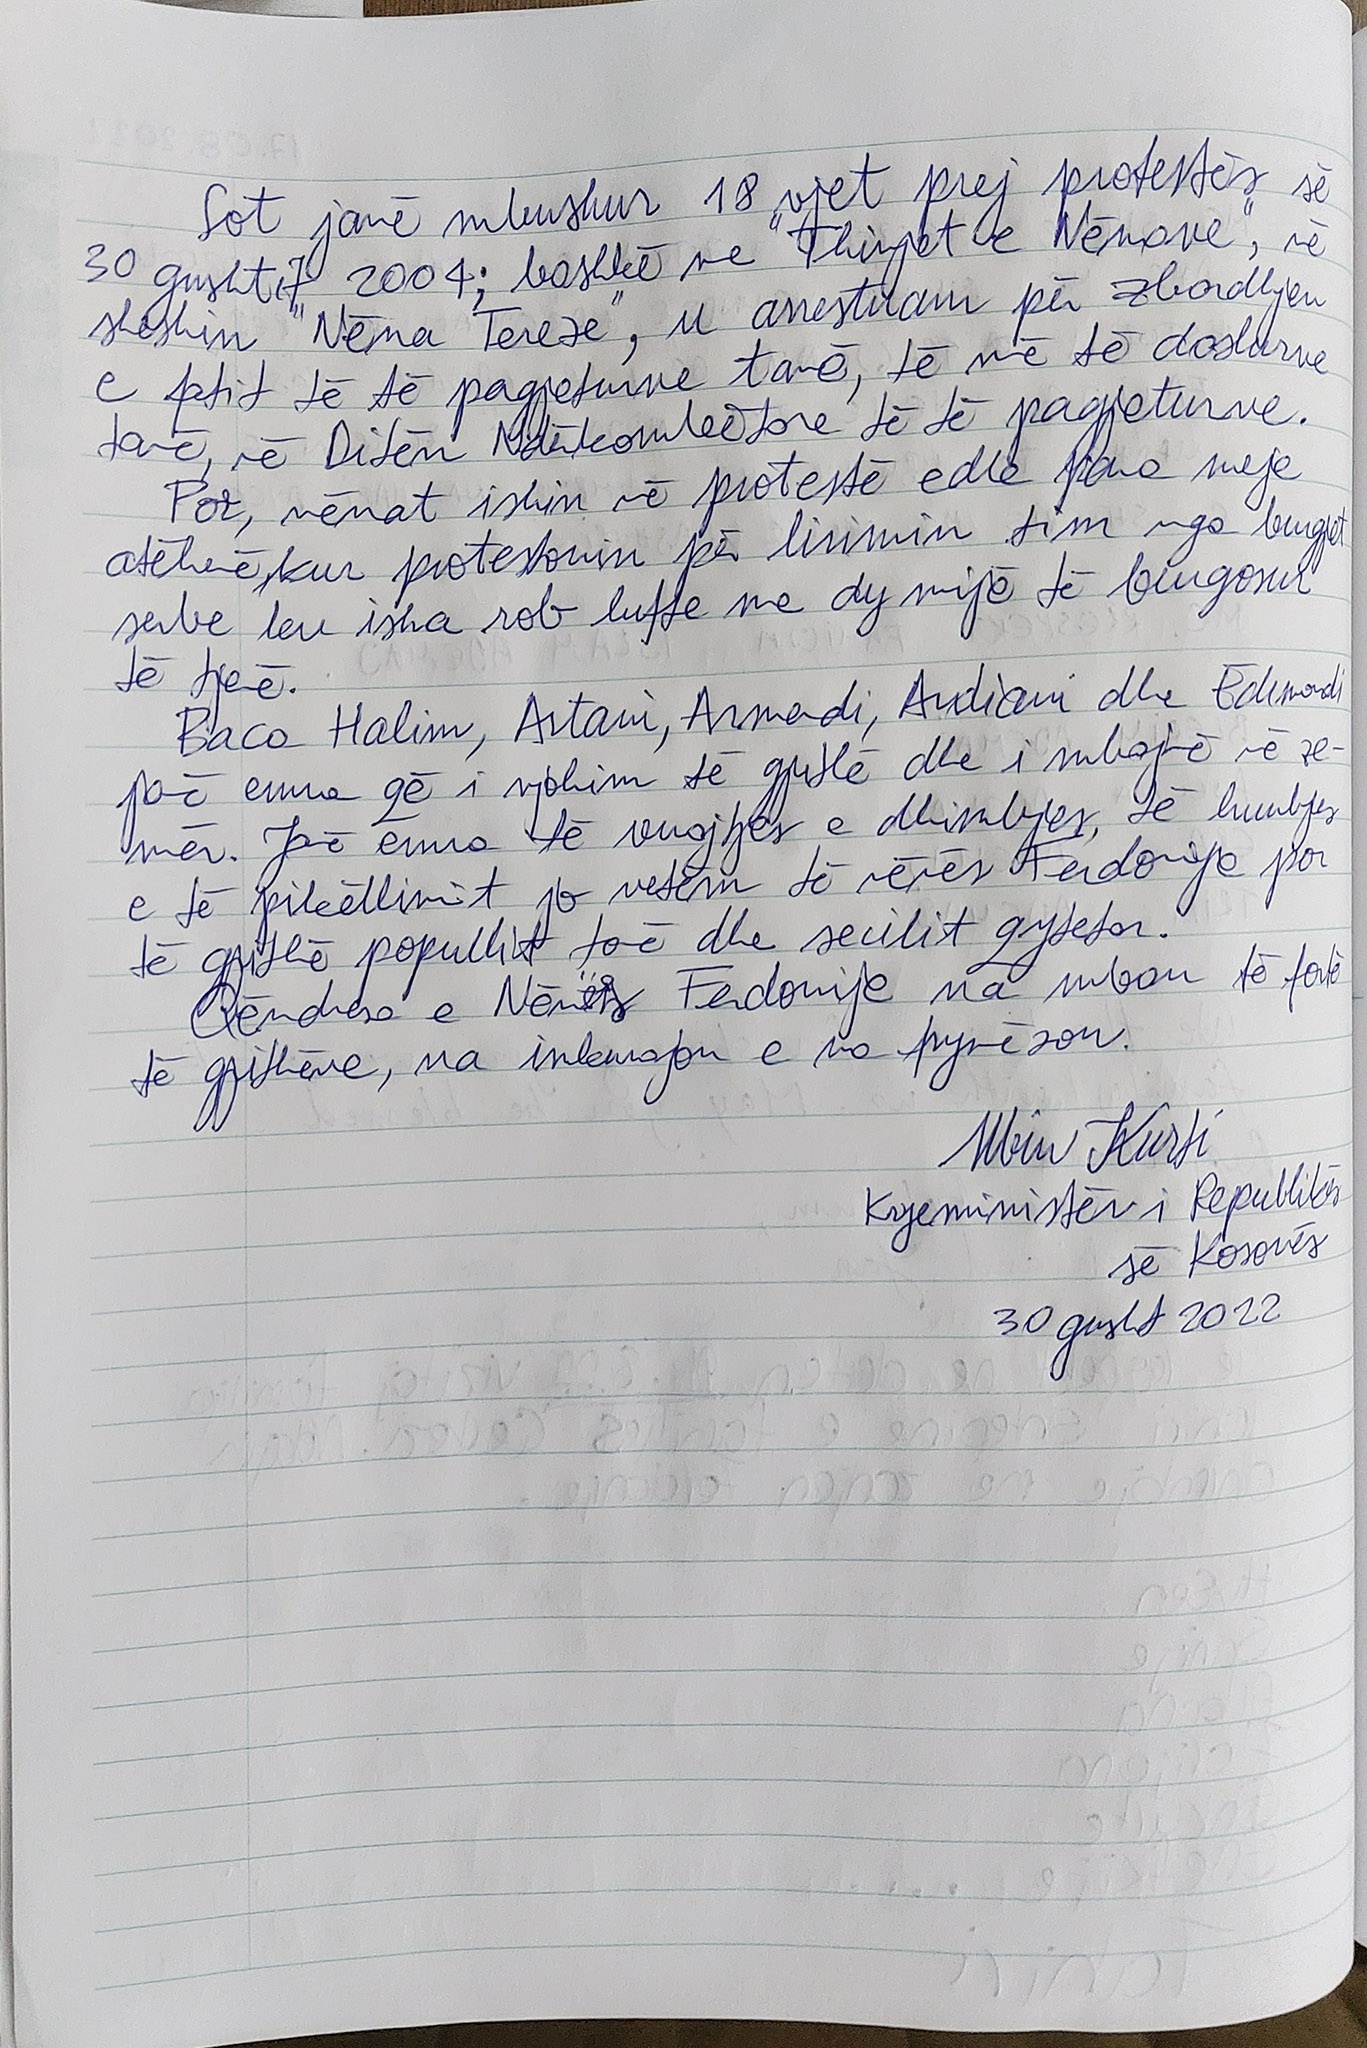 Sot janë mbushur 18 vjet prej protestës së
30 gushtit 2004; bashkë me "Thirrjet e Nënave", në
sheshin "Nëna Tereze", u arrestuam për zbardhjen
e fatit të të pagjeturve tanë, të më të dashurve
tanë, në Ditën Ndërkombëtare të të pagjeturve.
Por, nënat ishin në protestë edhe para meje
atëherë, kur protestonin për lirimin tim nga burgjet
serbe ku isha rob lufte me dy mijë të burgosur
të tjerë.
Baca Halim, Artani, Armendi, Ardiani dhe Edmondi
janë emra që i njohim të gjithë dhe i mbajmë në ze-
mër. Janë emra të vuajtjes e dhimbjes, të humbjes
e të pikëllimit jo vetëm të nënës Ferdonije por
të gjithë popullit tonë dhe secilit qytetar.
Qëndresa e Nënës Ferdonije na mban të fortë
të gjithëve, na inkurajon e na frymëzon.
Albin Kurti
Kryeministër i Republikës
së Kosovës
30 gusht 2022